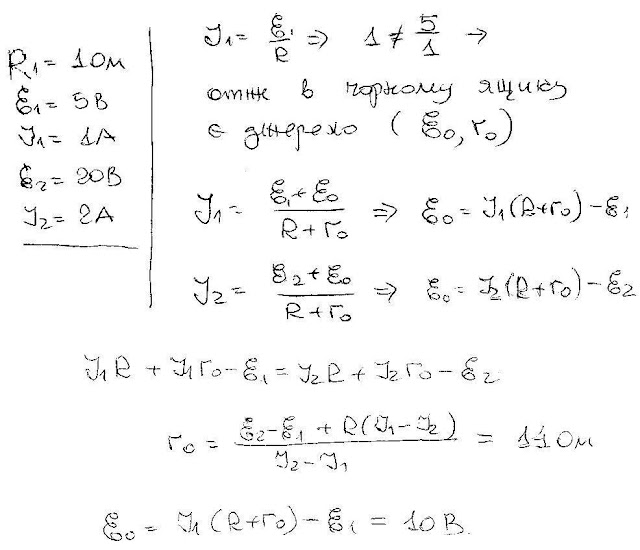 R₁ = 1 Ом
ℰ₁ = 5В
J₁ = 1А
ℰ₂ = 20В
J₂ = 2А
J₁ = ℰ₁/R ⇒ 1 ≠ 5/1 →
отже в чорному ящику
є джерело (ℰ₀, r₀)
J₁ = (ℰ₁+ℰ₀)/(R+r₀) ⇒ ℰ₀ = J₁(R+r₀) − ℰ₁
J₂ = (ℰ₂+ℰ₀)/(R+r₀) ⇒ ℰ₀ = J₂(R+r₀) − ℰ₂
J₁R + J₁r₀ − ℰ₁ = J₂R + J₂r₀ − ℰ₂
r₀ = (ℰ₂−ℰ₁ + R(J₁−J₂))/(J₂−J₁) = 14 Ом
ℰ₀ = J₁(R+r₀) − ℰ₁ = 10В.